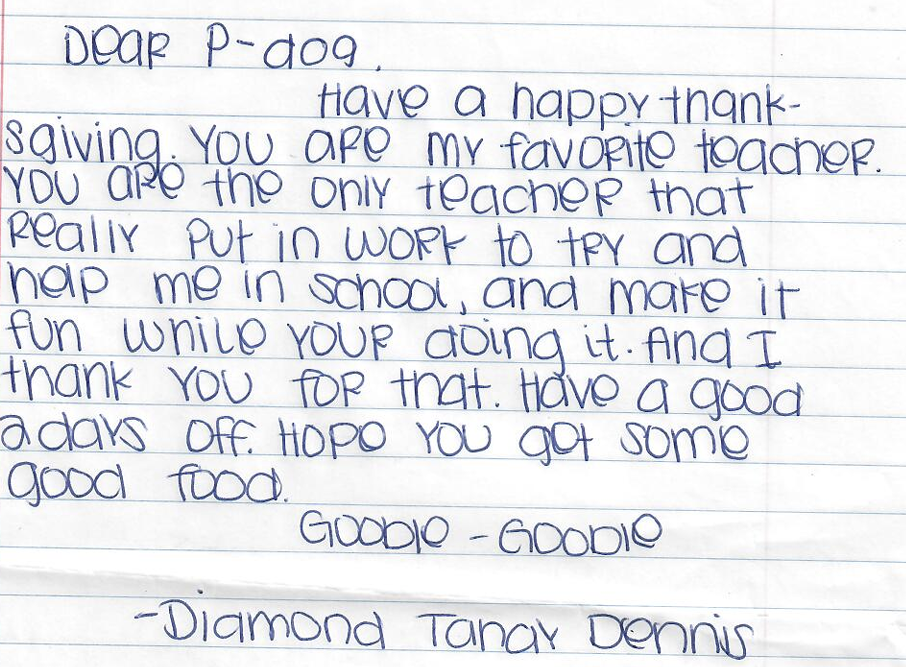 Dear P-dog,
Have a happy thank-
sgiving. You are my favorite teacher.
You are the only teacher that
really put in work to try and
help me in school, and make it
fun while your doing it. And I
thank you for that. Have a good
2 days off. Hope you get some
good food.
Goodie - Goodie
-Diamond Tanay Dennis